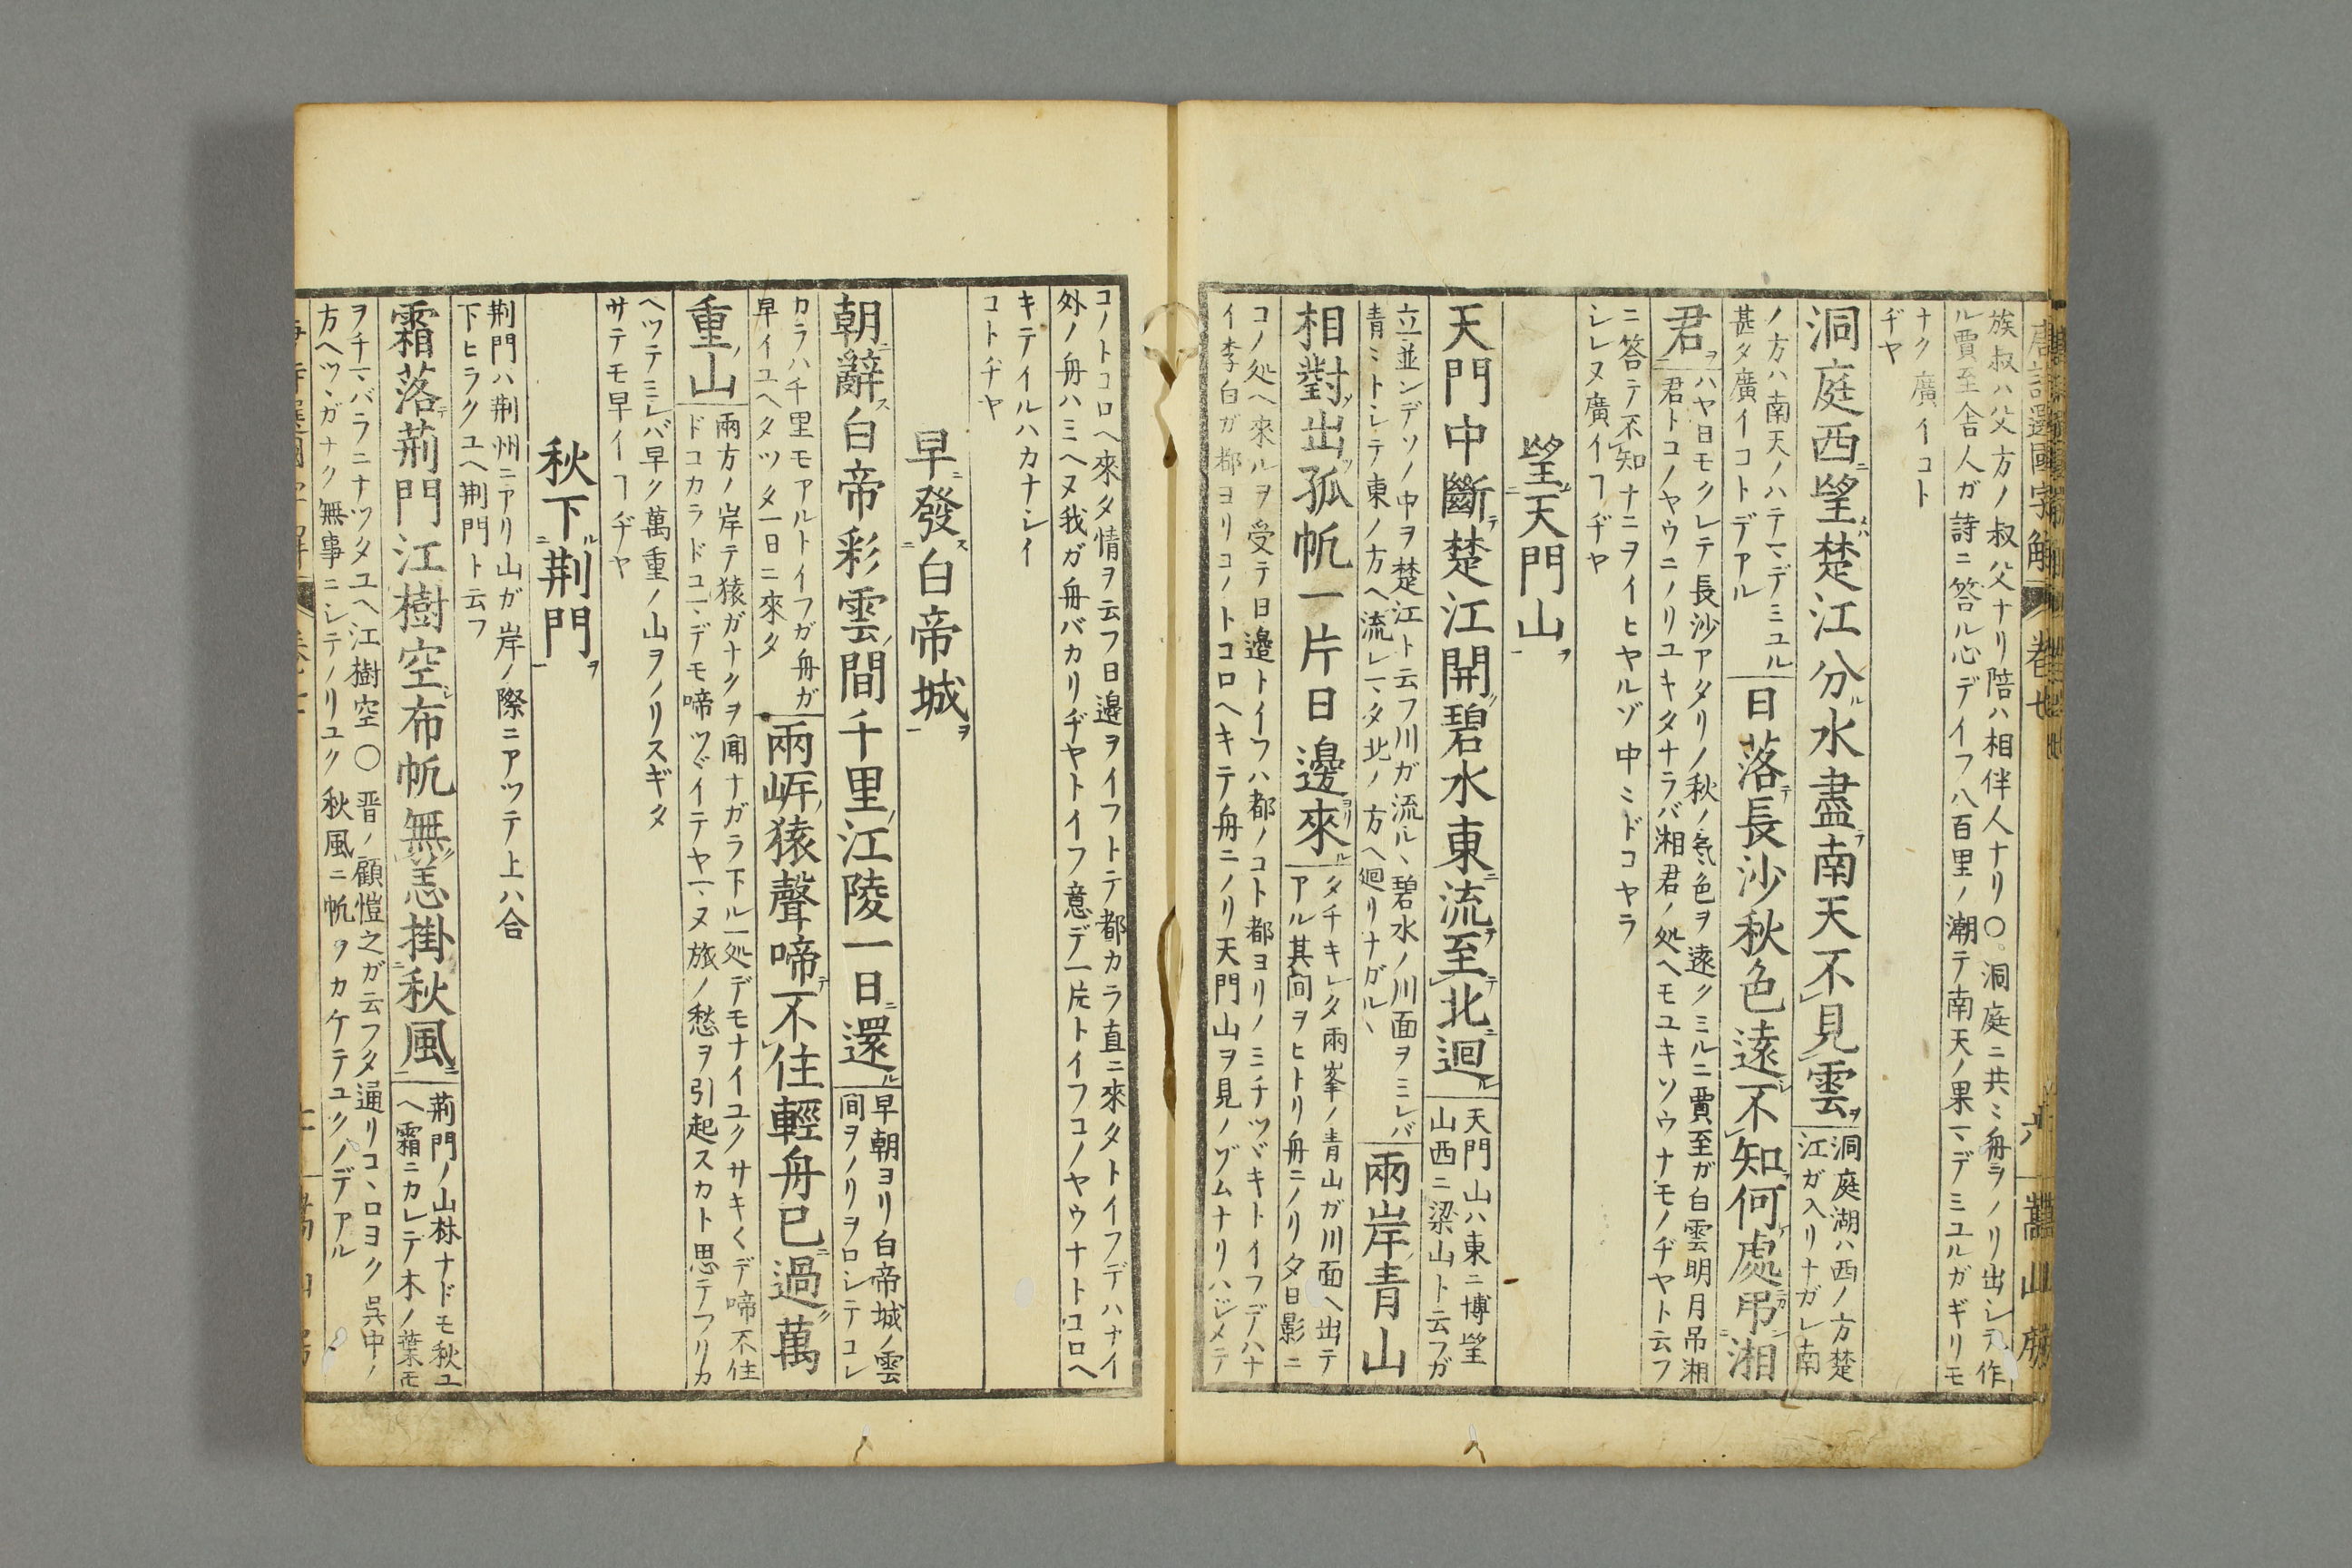 唐詩選國字解 卷七 六 嵩山房
族叔ハ父方ノ叔父ナリ陪ハ相伴人ナリ〇洞庭ニ共ミ舟ヲノリ出シテ作
ル賈至舎人ガ詩ニ答ル心デイフ八百里ノ潮テ南天ノ果マデミユルガギリモ
ナク廣イコト
ヂヤ
洞庭西望楚江分水盡南天不見雲
洞庭湖ハ西ノ方楚
江ガ入リナガレ南
ノ方ハ南天ノハテマデミユル
甚タ廣イコトデアル
日落長沙秋色遠不知何處弔湘
君
ハヤ日モクレテ長沙アタリノ秋ノ氣色ヲ遠クミルニ賈至ガ白雲明月吊湘
君トコノヤウニノリユキタナラバ湘君ノ処ヘモユキソウナモノヂヤト云フ
ニ答テ不知ナニヲイヒヤルゾ中ミドコヤラ
シレヌ廣イヿヂヤ
望天門山
天門中斷楚江開碧水東流至北迴
天門山ハ東ニ博望
山西ニ梁山ト云フガ
立並ンデソノ中ヲ楚江ト云フ川ガ流ル丶碧水ノ川面ヲミレバ
青ミトシテ東ノ方ヘ流レマタ北ノ方ヘ廻リナガル丶
兩岸青山
相對出孤帆一片日邊來
タチキレタ兩峯ノ青山ガ川面ヘ出テ
アル其間ヲヒトリ舟ニノリ夕日影ニ
コノ処ヘ來ルヲ受テ日邊トイフハ都ノコト都ヨリノミチツヾキトイフデハナ
イ李白ガ都ヨリコノトコロヘキテ舟ニノリ天門山ヲ見ノゾムナリハジメテ
コノトコロヘ來タ情ヲ云フ日邊ヲイフトテ都カラ直ニ來タトイフデハナイ
外ノ舟ハミヘヌ我ガ舟バカリヂヤトイフ意デ一片トイフコノヤウナトコロヘ
キテイルハカナシイ
コトヂヤ
早發白帝城
朝辭白帝彩雲間千里江陵一日還
早朝ヨリ白帝城ノ雲
間ヲノリヲロシテコレ
カラハ千里モアルトイフガ舟ガ
早イユヘタツタ一日ニ來タ
兩岸猿聲啼不住輕舟已過萬
重山
兩方ノ岸テ猿ガナクヲ聞ナガラ下ル一処デモナイユクサキ〱デ啼不住
ドコカラドコマデモ啼ツヾイテヤマヌ旅ノ愁ヲ引起スカト思テフリカ
ヘツテミレバ早ク萬重ノ山ヲノリスギタ
サテモ早イヿヂヤ
秋下荊門
荆門ハ荆州ニアリ山ガ岸ノ際ニアツテ上ハ合
下ヒラクユヘ荆門ト云フ
霜落荊門江樹空布帆無恙掛秋風
荊門ノ山林ナドモ秋ユ
ヘ霜ニカレテ木ノ葉モ
ヲチマバラニナツタユヘ江樹空〇晋ノ顧愷之ガ云フタ通リコ丶ロヨク呉中ノ
方ヘツ丶ガナク無事ニシテノリユク秋風ニ帆ヲカケテユクノデアル